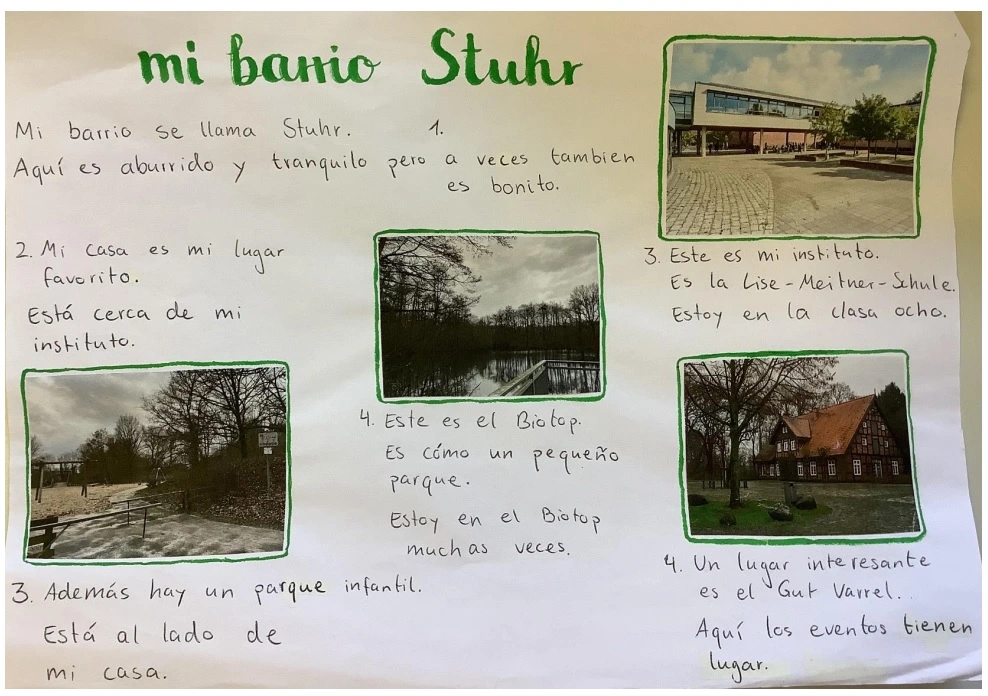 mi barrio Stuhr
Mi barrio se llama Stuhr. 1.
Aquí es aburrido y tranquilo pero a veces tambien
es bonito.
2. Mi casa es mi lugar
favorito.
Está cerca de mi
instituto.
3. Este es mi instituto.
Es la Lise-Meitner-Schule.
Estoy en la clasa ocho.
4. Este es el Biotop.
Es cómo un pequeño
parque.
Estoy en el Biotop
muchas veces.
3. Además hay un parque infantil.
Está al lado de
mi casa.
4. Un lugar interesante
es el Gut Varrel..
Aquí los eventos tienen
lugar.